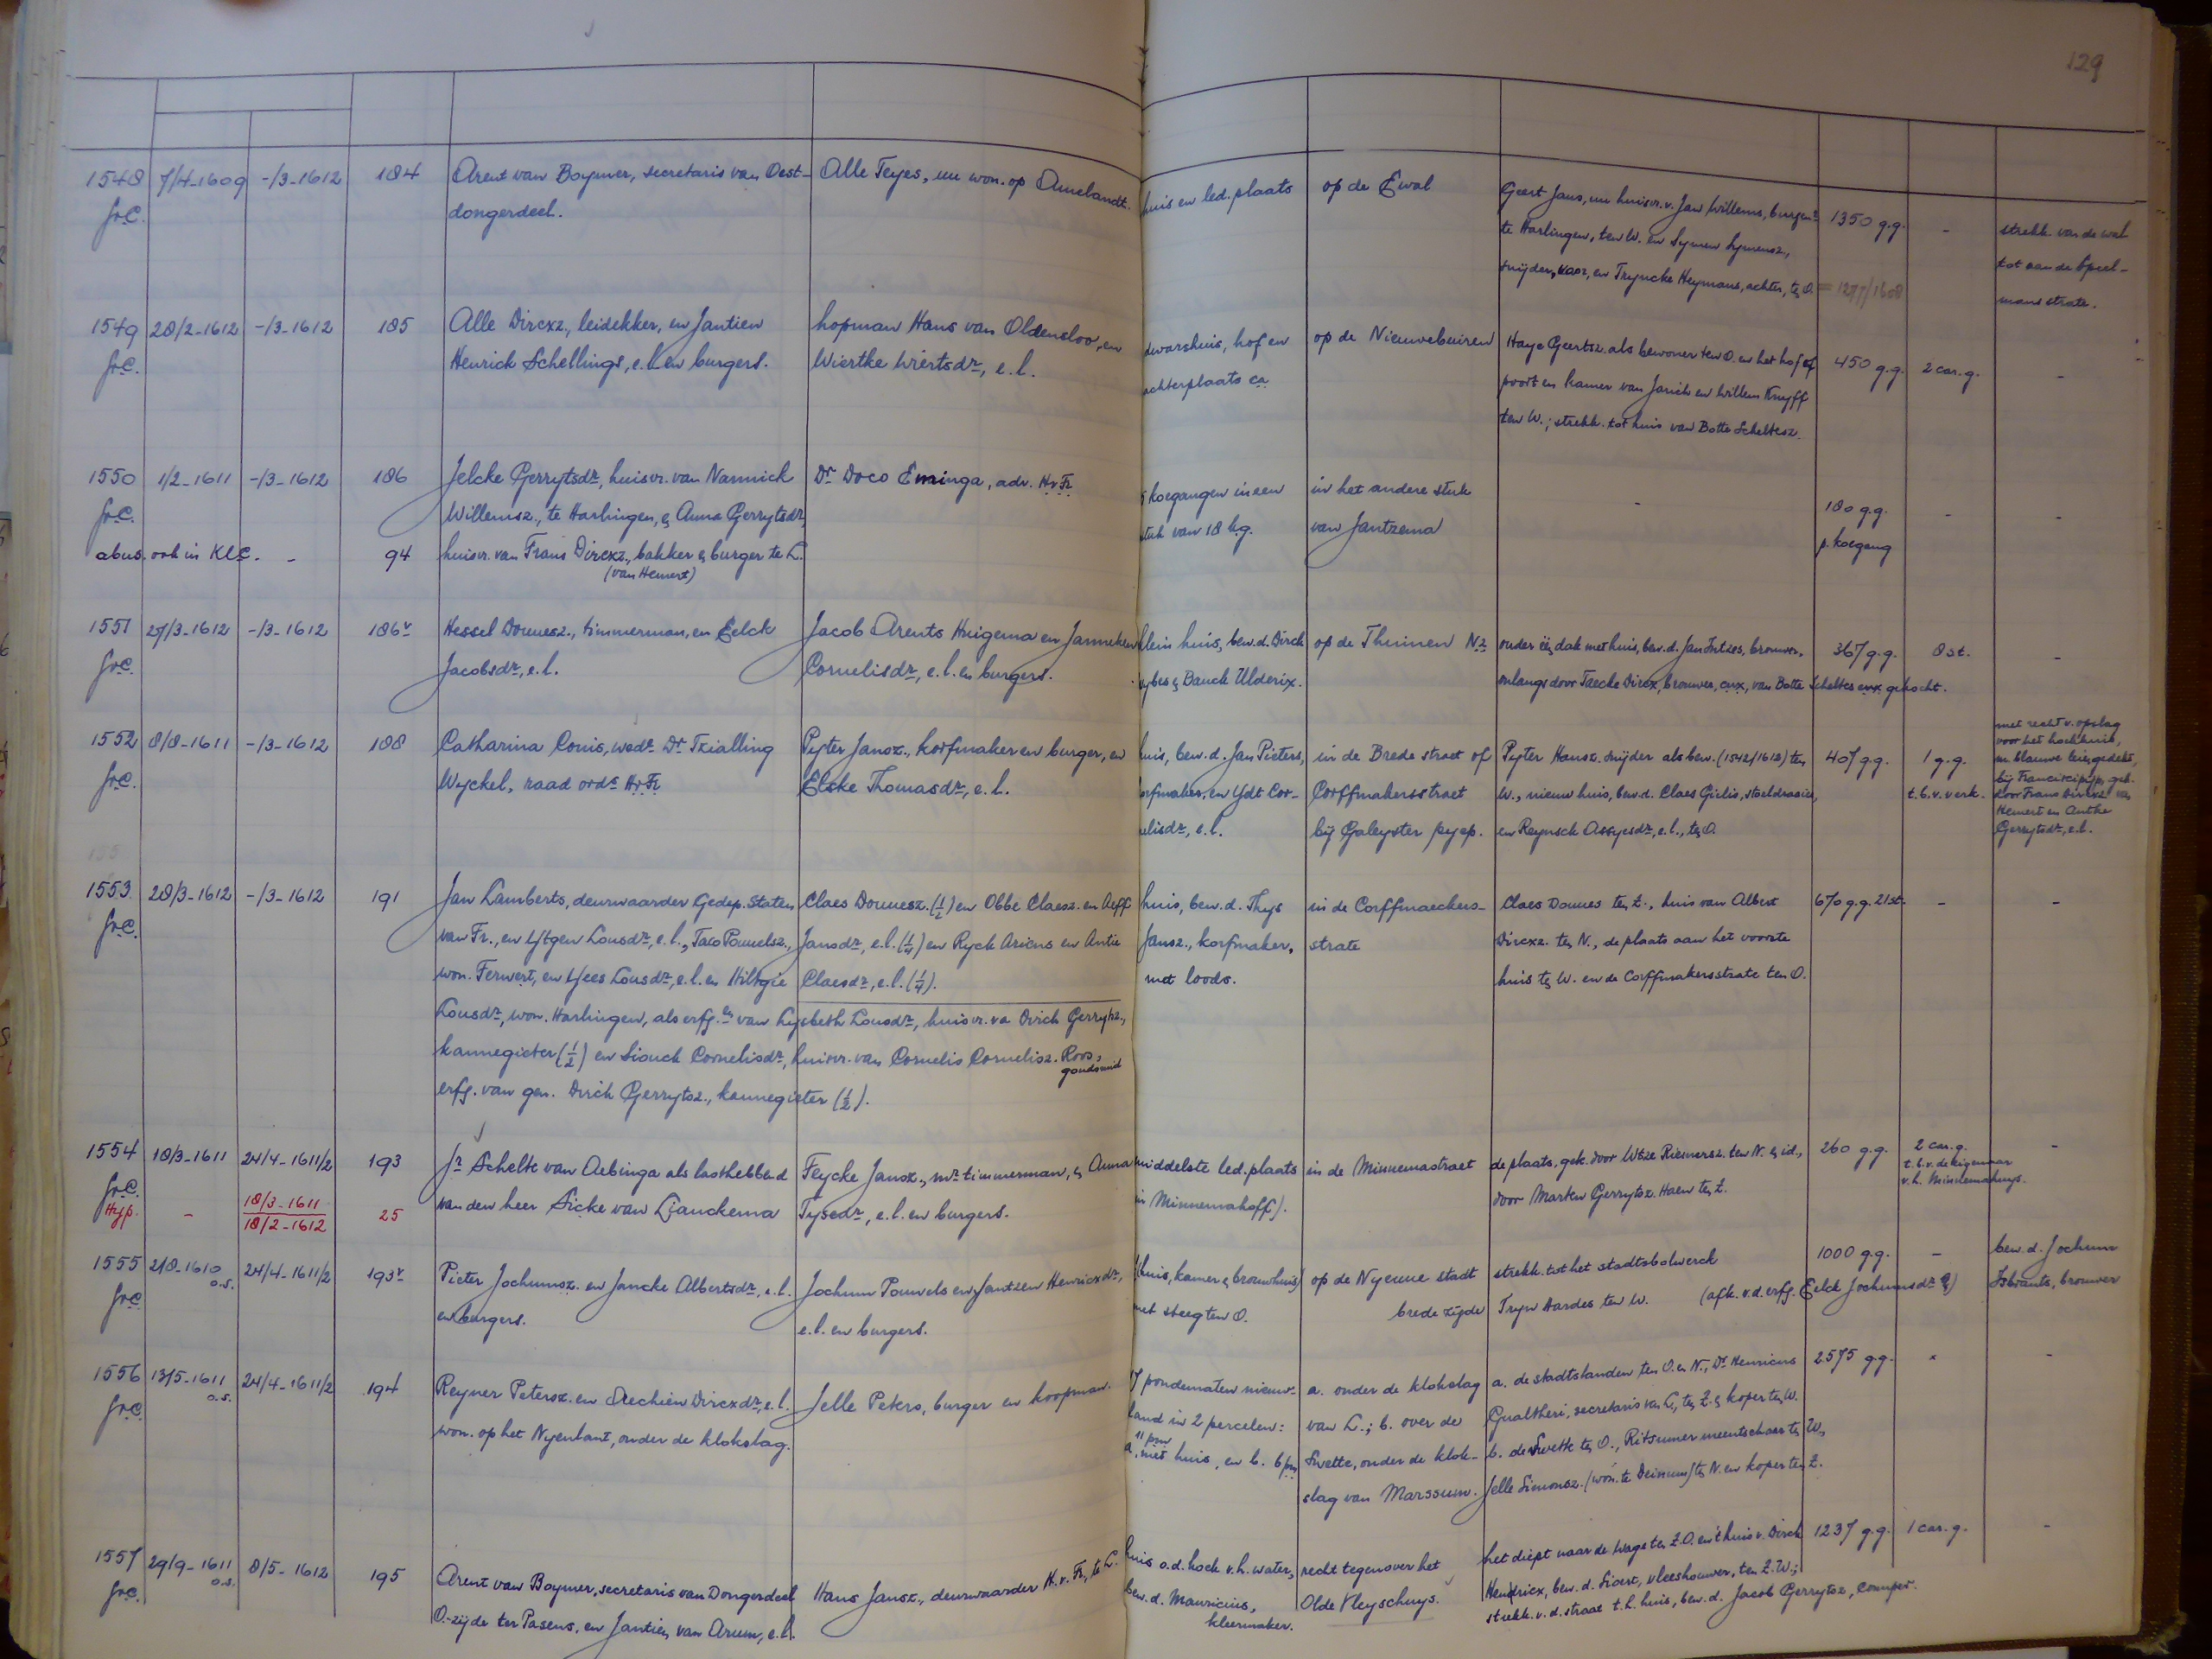 129
1548 7/4-1609 -/3-1612 184 Arent van Boymer, secretaris van Oest- Alle Teyes, nu won. op Amelandt. huis en led. plaats op de Ewal Geert Jans, nu huisvr. v. Jan Willems, burgem. 1350 g.g. - strekk. van de wal
GrC. dongerdeel. te Harlingen, ten W. en Symen Symensz., tot aan de Speel-
snijder, voor, en Tryncke Heymans, achter, ten O. = 1277/1608 mans strate.
1549 28/2-1612 -/3-1612 185 Alle Dircxz., leidekker, en Jantien hopman Hans van Oldensloo, en dwarshuis, hof en op de Nieuwebuiren Haye Geertsz. als bewoner ten O. en het hof of 450 g.g. 2 car. g. -
GrC. Henrick Schellings, e.l. en burgers. Wiertke Wiertsdr., e.l. achterplaats c.a. poort en kamer van Janich en Willem Knyff
ten W.; strekk. tot huis van Botte Scheltesz.
1550 1/2-1611 -/3-1612 186 Jelcke Gerrytsdr., huisvr. van Nannick Dr. Doco Eminga, adv. HvFr. koegangen in een in het andere stuk - 180 g.g. - -
GrC. Willemsz., te Harlingen, en Anna Gerrytsdr. stuk van 18 kg. van Jantzema p. koegang
abus. ook in KlC. - 94 huisvr. van Frans Dircxz., bakker en burger te L.
(van Hemert)
1551 27/3-1612 -/3-1612 186v Hessel Douwesz., timmerman, en Eelck Jacob Arents Huigema en Janneken klein huis, bew. d. Dirck op de Thuinen N.z. onder één dak met huis, bew. d. Jan Intzes, brouwer, 367 g.g. 8 st. -
GrC. Jacobsdr., e.l. Cornelisdr., e.l. en burgers. Sybes en Bauck Ulderix. onlangs door Taecke Dircx, brouwer, cux., van Botte Scheltes cux. gekocht.
1552 8/8-1611 -/3-1612 188 Catharina Conis, wedr. Dr. Tzialling Pyter Jansz., korfmaker en burger, en huis, bew. d. Jan Pieters, in de Brede straet of Pyter Hansz. snijder als bew. (1542/1612) ten 407 g.g. 1 g.g. met recht v. opslag
voor het hoekhuis,
GrC. Wyckel, raad ords. HvFr. Elske Thomasdr., e.l. korfmaker, en Ydt Cor- Corffmakersstraet W., nieuw huis, bew. d. Claes Gielis, stoeldraaier, t.b.v. verk. m. blauwe leien gedekt,
bij Franciscipijp, gek.
nelisdr., e.l. bij Galeyster pyep. en Reynsck Assyesdr., e.l., ten O. door Frans Dircxz. van
Hemert en Antke
Gerrytsdr., e.l.
1553 28/3-1612 -/3-1612 191 Jan Lamberts, deurwaarder Gedep. Staten Claes Douwesz. (½) en Obbe Claesz. en Aeff huis, bew. d. Thys in de Corffmaeckers- Claes Douwes ten Z., huis van Albert 670 g.g. 21 st. - -
GrC. van Fr., en Ytgen Lousdr., e.l., Taco Pouwelsz., Jansdr., e.l. (¼) en Ryck Ariens en Antie Jansz., korfmaker, strate Dircxz. ten N., de plaats aan het voorste
won. Ferwert, en Yees Lousdr., e.l. en Hiltgie Claesdr., e.l. (¼). met loods. huis ten W. en de Corffmakersstrate ten O.
Lousdr., won. Harlingen, als erfg.en van Lysbeth Lousdr., huisvr. va Dirck Gerrytsz.,
kannegieter (½) en Siouck Cornelisdr., huisvr. van Cornelis Cornelisz. Roos, goudsmid
erfg. van gen. Dirck Gerrytsz., kannegieter (½).
1554 18/3-1611 24/4-1611/2 193 Jr. Schelte van Aebinga als lasthebbend Feycke Jansz., mr. timmerman, en Anna middelste led. plaats in de Minnemastraet de plaats, gek. door Wtze Riemersz. ten N. en id., 260 g.g. 2 car. g. -
GrC. van den heer Sicke van Tjauckema Tysedr., e.l. en burgers. in Minnemahoff). door Marten Gerrytsz. Haen ten Z. t.b.v. de eigenaar
v.h. Minnemahuys.
Hyp. - 18/3-1611 25
18/2-1612
1555 2/8-1610 o.s. 24/4-1611/2 193v Pieter Jochumsz. en Jancke Albertsdr., e.l. Jochum Pouwels en Jantzen Henricxdr., (huis, kamer en brouwhuis) op de Nyeuue stadt strekk. tot het stadtsbolwerck 1000 g.g. - bew. d. Jochum
GrC en burgers. e.l. en burgers. met steeg ten O. brede zijde Tryn Hardes ten W. (afk. v.d. erfg. Eelck Jochumsdr.) Isbrants, brouwer
1556 13/5-1611 o.s. 24/4-1611/2 194 Reyner Petersz. en Aechien Dircxdr., e.l. Jelle Peters, burger en koopman. 17 pondematen nieuw- a. onder de klokslag a. de stadtslanden ten O. en N., Dr. Henricus 2575 g.g. - -
GrC. won. op het Nyenlant, onder de klokslag. land in 2 percelen: van L.; b. over de Gualtheri, secretaris van L., ten Z. en koper ten W.
a. 11 pm met huis, en b. 6 pm Swette, onder de klok- b. de Swette ten O., Ritsumer meentschaar ten W.,
slag van Marssum. Jelle Simonsz. (won. te Deinum) ten N. en koper ten Z.
1557 29/9-1611 o.s. 8/5-1612 195 Arent van Boymer, secretaris van Dongerdeel Hans Jansz., deurwaarder H.v.Fr., te L. huis o.d. hoek v.h. water, recht tegenover het het diept naar de Wage ten Z.O. en 't huis v. Dirck 1237 g.g. 1 car. g. -
GrC. O.-zijde ter Pasens, en Jantien van Arum, e.l. bew. d. Mauricius, Olde Vleyschuys. Hendricx, bew. d. Sioert, vleeshouwer, ten Z.W.;
kleermaker. strekk. v.d. straat t.h. huis, bew. d. Jacob Gerrytsz, comper.